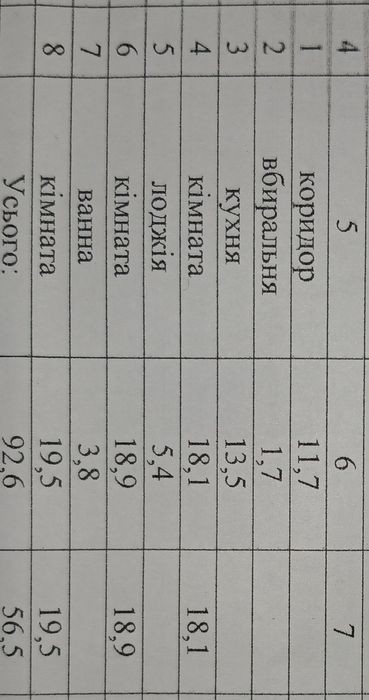 4 5 6 7
1 коридор 11,7
2 вбиральня 1,7
3 кухня 13,5
4 кімната 18,1 18,1
5 лоджія 5,4
6 кімната 18,9 18,9
7 ванна 3,8
8 кімната 19,5 19,5
Усього: 92,6 56,5